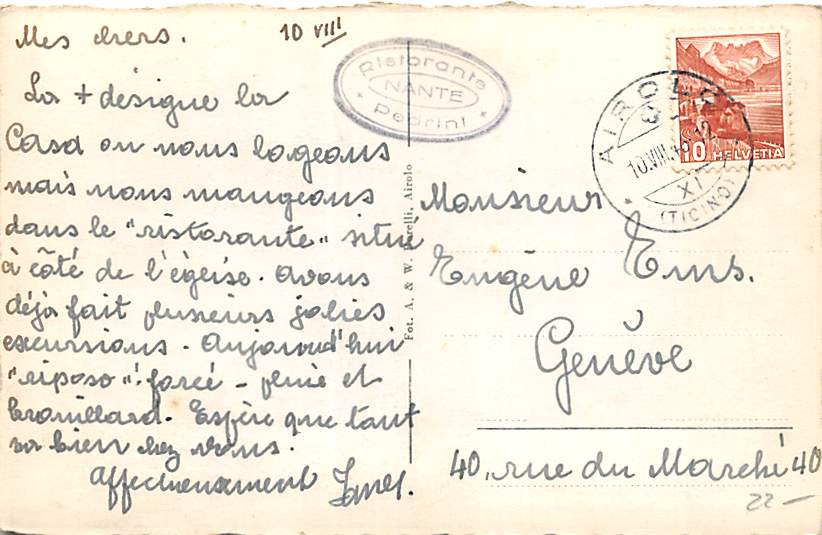 Mes chers.
10 VIII
La + désigne la
Casa ou nous logeons
mais nous mangeons
dans le "ristorante" situé
à côté de l'église. Avons
déjà fait plusieurs jolies
excursions. Aujourd'hui
"riposo" forcé - pluie et
brouillard. Espère que tout
va bien chez vous.
Affectueusement
Ristorante
NANTE
* Pedrini *
Fot. A. & W. Borelli, Airolo
AIROLO
10.VIII
XI
(TICINO)
10 HELVETIA
Monsieur
Eugène Ems.
Genève
40, rue du Marché 40
22 -